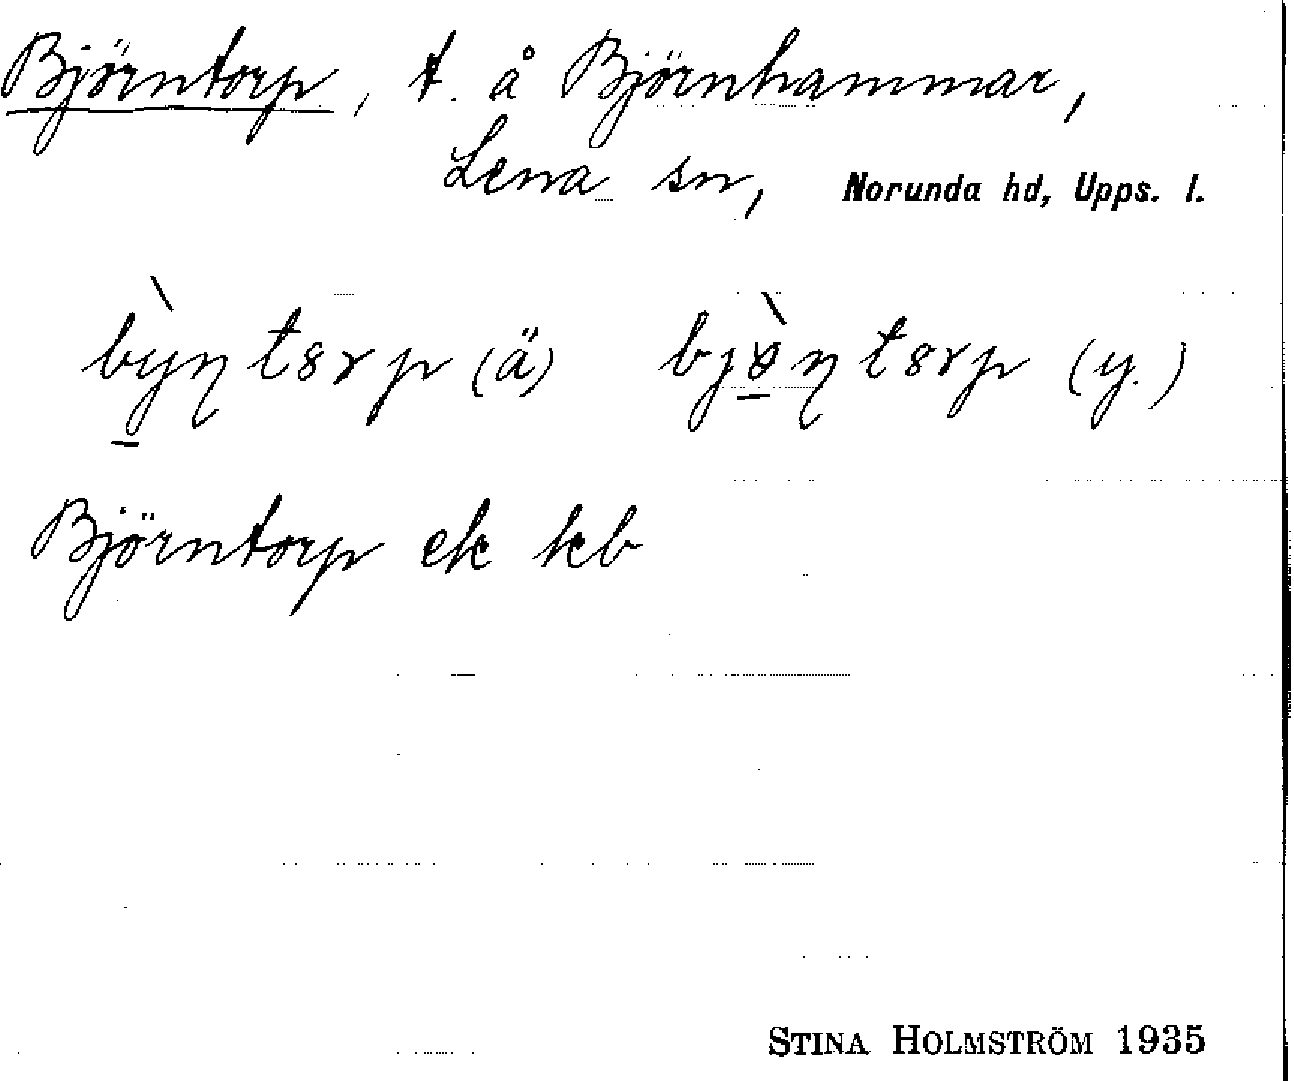 Björntorp, t. å Björnhammar,
Lena sn, Norunda hd, Upps. l.
bỳn torp (ä) bjòn torp (y.)
Björntorp ek kb
STINA HOLMSTRÖM 1935